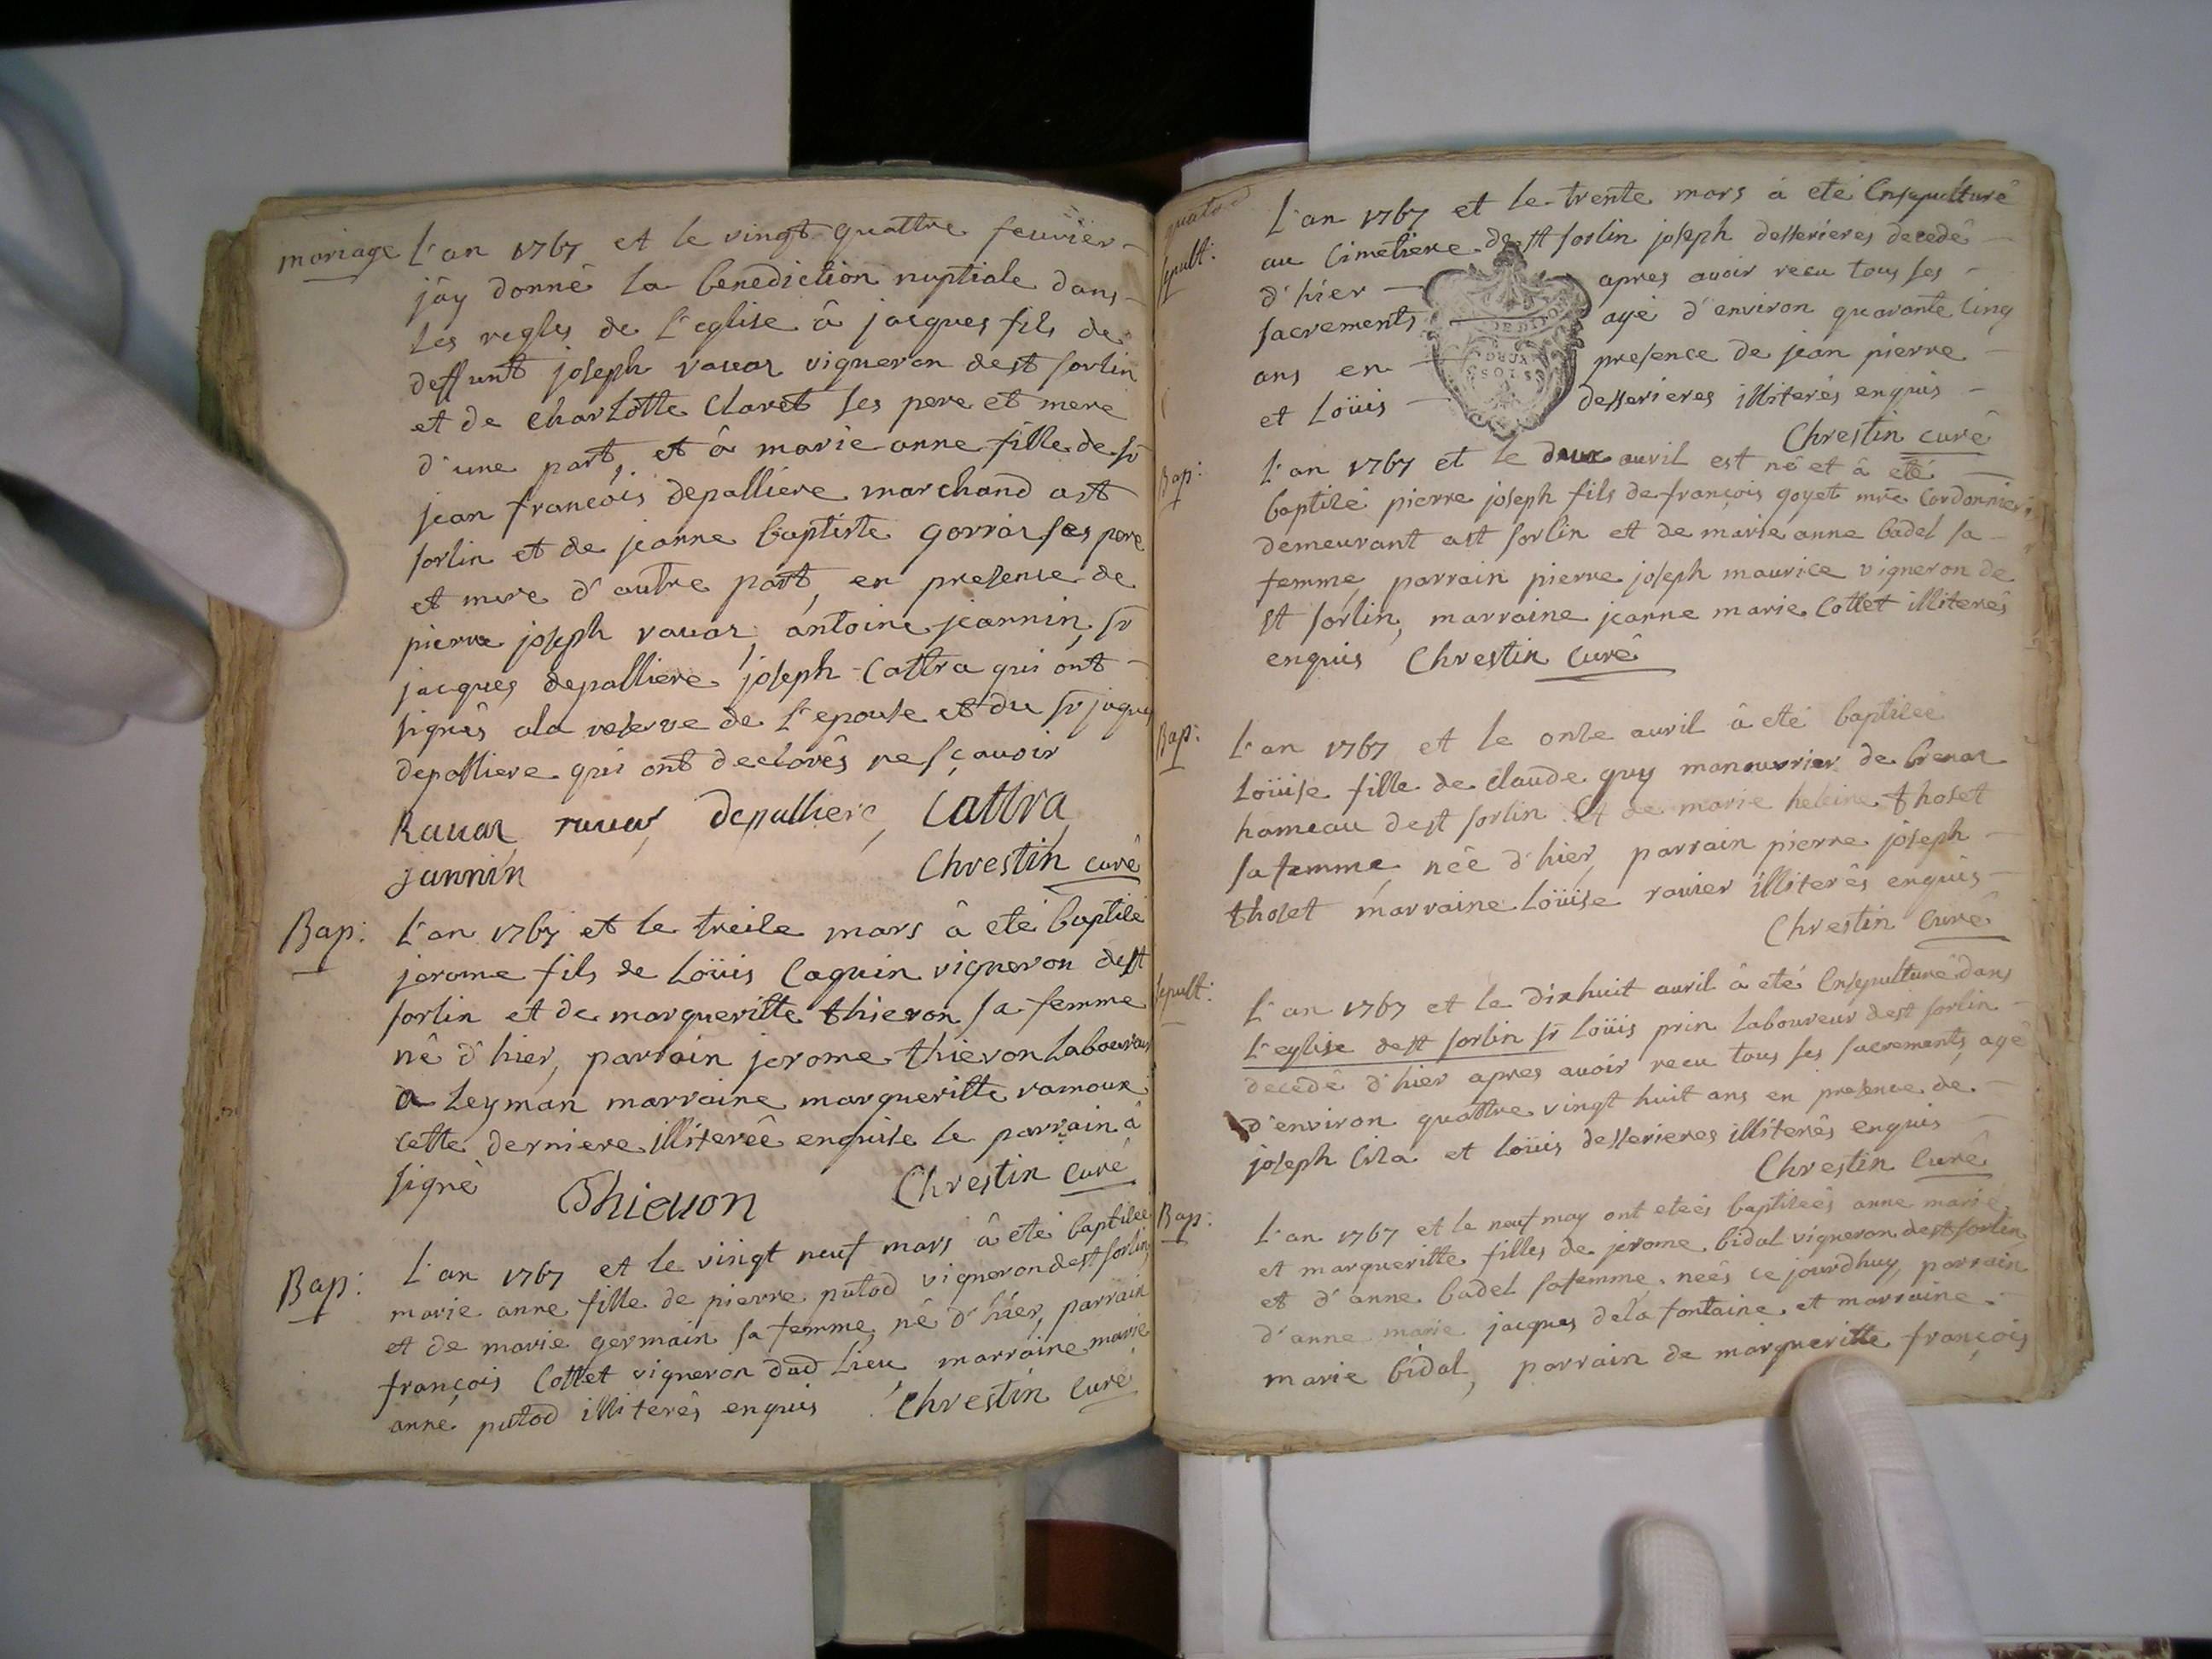 mariage L'an 1767 et le vingt quattre feuvrier
j'ay donné la benediction nuptiale dans
les regles de L'eglise â jacques fils de
deffunt joseph ravaz vigneron de st sorlin
et de charlotte claret ses pere et mere
d'une part, et â marie anne fille de sr
jean françois depalliere marchand a st
sorlin et de jeanne baptiste gorraz ses pere
et mere d'autre part, en presence de
pierre joseph ravaz, antoine jeannin, sr
jacques depalliere, joseph Cattra qui ont
signês ala reserve de L'epouse et du sr jaques
depalliere qui ont declarês ne sçavoir
Ravaz, ravaz, Depalliere, Cattra
jannin Chrestin curê
Bap: L'an 1767 et le treise mars â eté baptisé
jerome fils de Loüis Caquin vigneron de st
sorlin et de margueritte thievon sa femme
nê d'hier, parrain jerome thievon laboureur
a Leyman marraine margueritte ramoux
cette derniere illiterêe enquise le parrain â
signè Thievon Chrestin curé
Bap: L'an 1767 et le vingt neuf mars â eté baptisée
marie anne fille de pierre putod vigneron de st sorlin
et de marie germain sa femme, nê d'hier, parrain
françois Cottet vigneron dud Lieu, marraine marie
anne putod illiterês enquis Chrestin Curé
L'an 1767 et le trente mars â eté Ensepulturê
Sepult: au Cimetiere de st sorlin joseph desserieres decedê
d'hier apres avoir recu tous ses
sacrements agé d'environ quarante cinq
ans en presence de jean pierre
et Loüis desserieres illiterês enquis
Chrestin curê
Bap: L'an 1767 et le deux avril est nê et â eté
baptisé pierre joseph fils de françois goyet mre Cordonnier
demeurant a st sorlin et de marie anne badel sa
femme, parrain pierre joseph maurice vigneron de
st sorlin, marraine jeanne marie Cottet illiterês
enquis Chrestin Curê
Bap: L'an 1767 et le onse avril â eté baptisée
Loüise fille de claude guy manouvrier de brenaz
hameau de st sorlin Et de marie heleine thoset
sa femme, nêe d'hier, parrain pierre joseph
thoset marraine Loüise ravier illiterês enquis
Chrestin Curé
sepult: L'an 1767 et le dixhuit avril â eté Ensepulturé dans
L'eglise de st sorlin sr Loüis prin laboureur de st sorlin
decedê d'hier apres avoir recu tous ses sacrements, agê
d'environ quattre vingt huit ans en presence de
joseph et Loüis desserieres illiterês enquis
Chrestin Curê
Bap: L'an 1767 et le neuf may ont eteés baptiseês anne marie
et margueritte filles de jerome bidal vigneron de st sorlin
et d'anne badel sa femme, neés ce jourdhuy, parrain
d'anne marie jacques dela fontaine, et marraine
marie bidal, parrain de margueritte françois